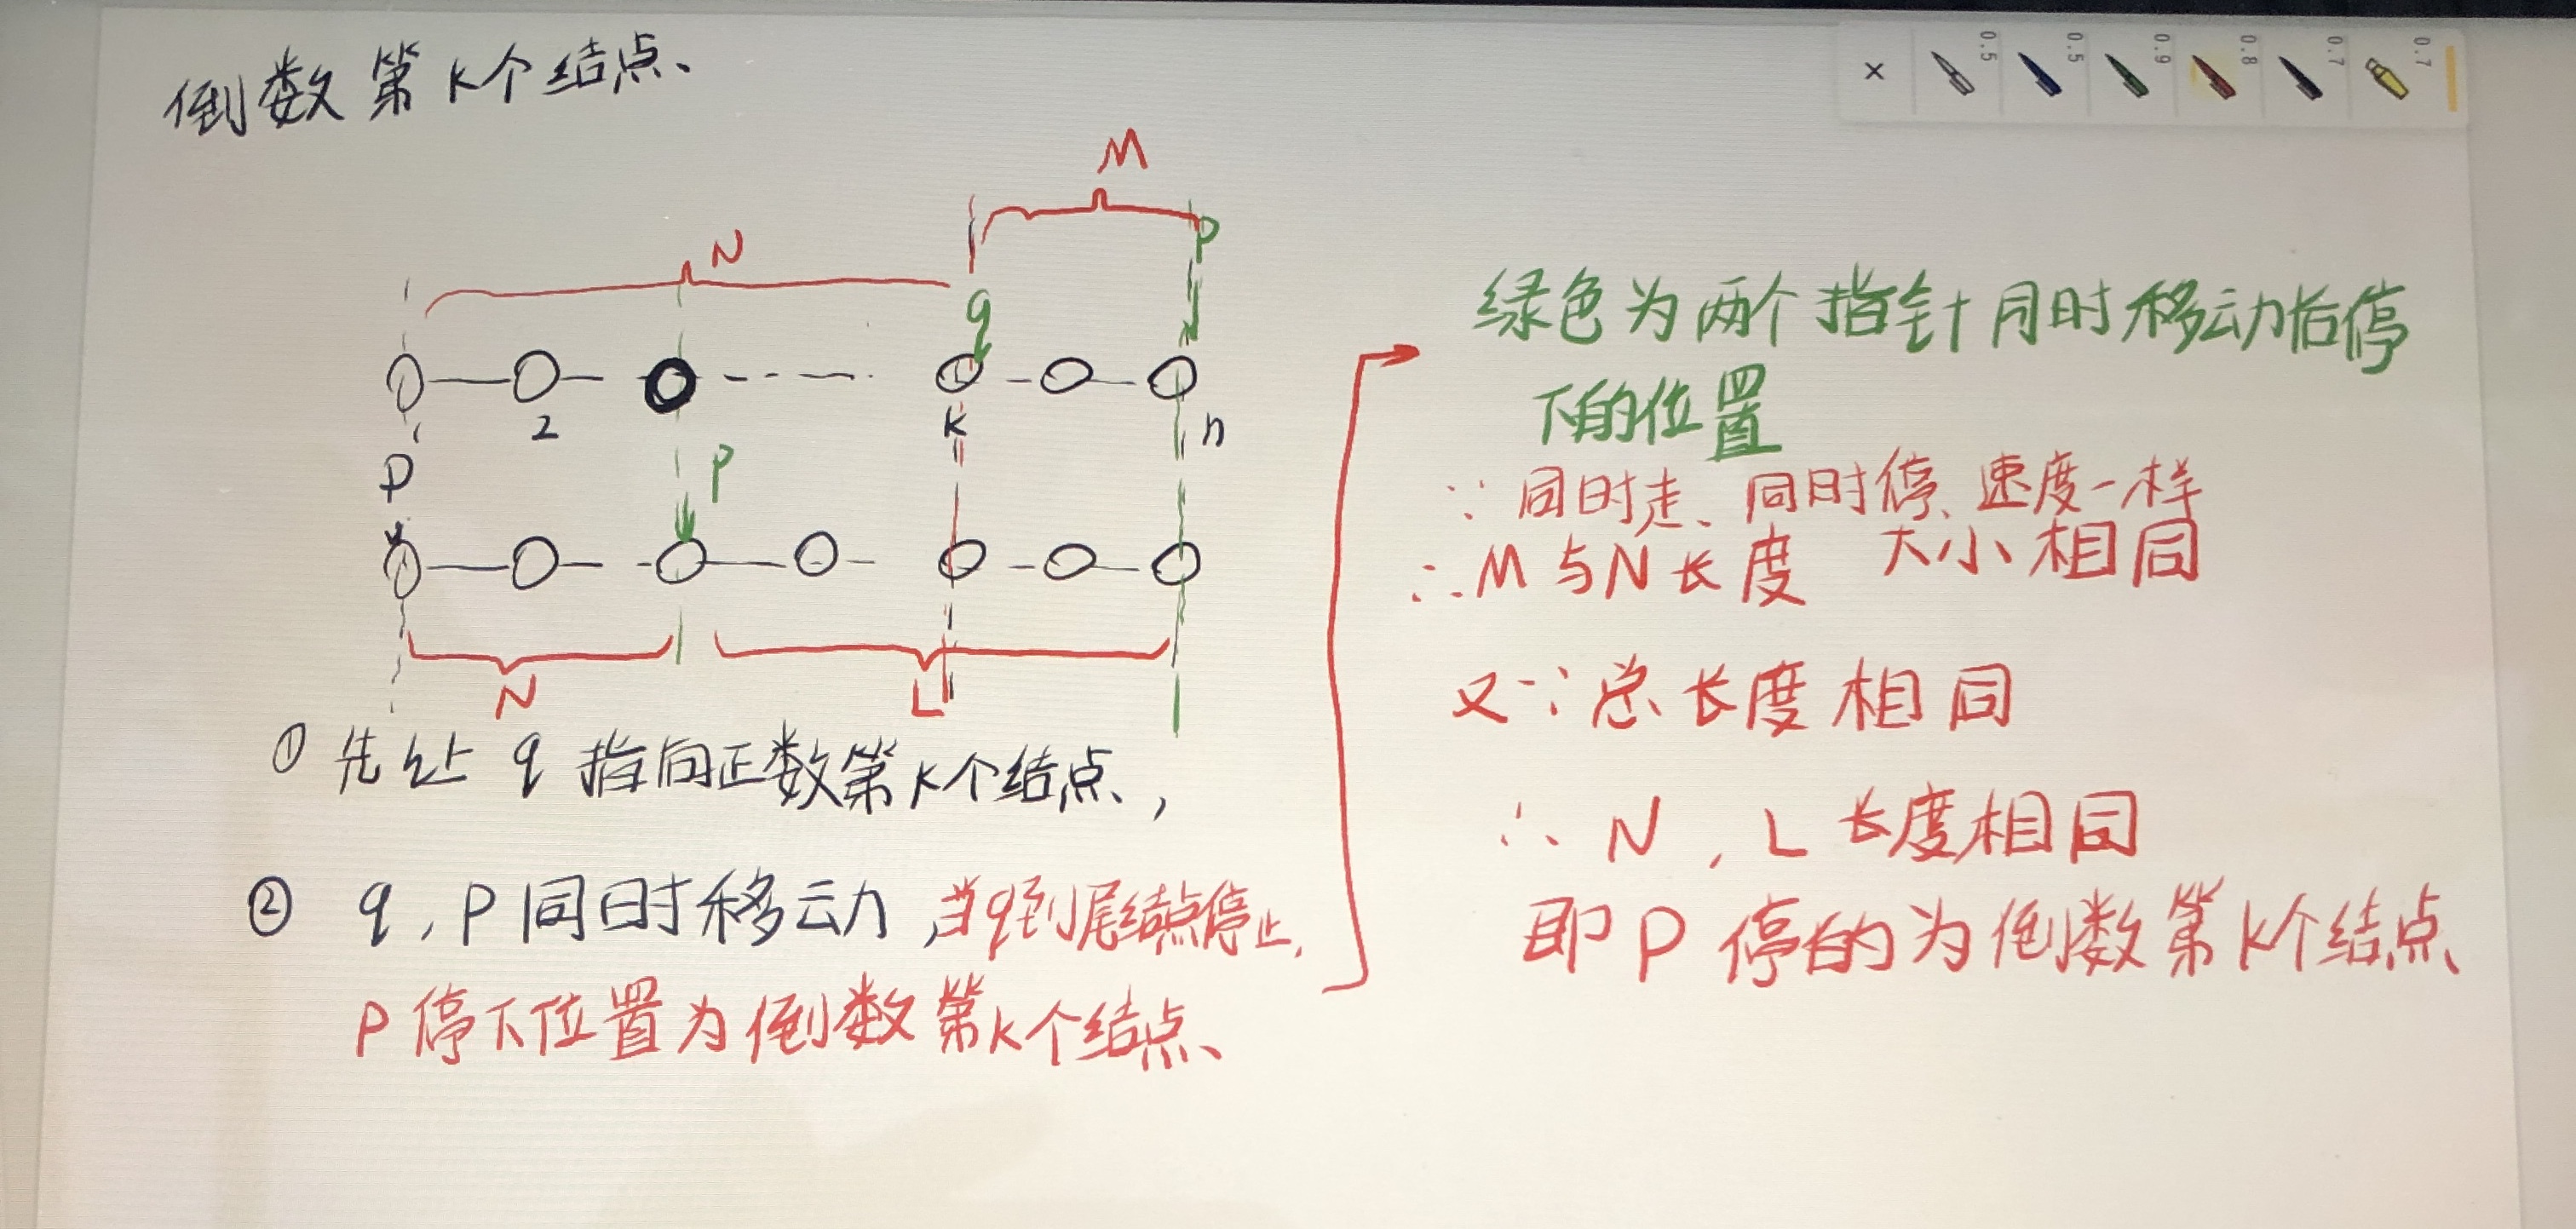 倒数第K个结点、
0.5
0.5
0.9
0.8
0.7
0.7
×
M
N
P
q
2
K
n
P
P
N
L
① 先让 q 指向正数第K个结点、,
② q, P同时移动,当q到尾结点停止,
P停下位置为倒数第K个结点、
绿色为两个指针同时移动后停
下的位置
∵ 同时走、同时停、速度一样
∴ M与N长度 大小相同
又∵总长度相同
∴ N, L长度相同
即 P 停的为倒数第K个结点、